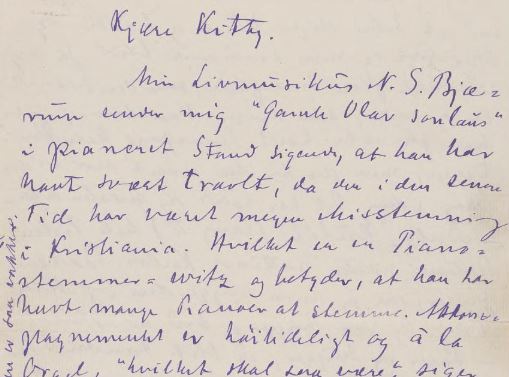 Kjære Kitty.
Min Livmusikus N. S. Bjæ=
rum sender mig "Gamle Olav sonlaus"
i pianeret Stand sigende, at han har
havt svært travlt, da der i den senere
Tid har været megen Misstemning
i Kristiania. Hvilket er en Piano=
stemmer=witz og betyder, at han har
havt mange Pianoer at stemme. Akkom=
pagnementet er höitideligt og à la
Orgel, "hvilket skal saa være" siger
en er saa vakker.